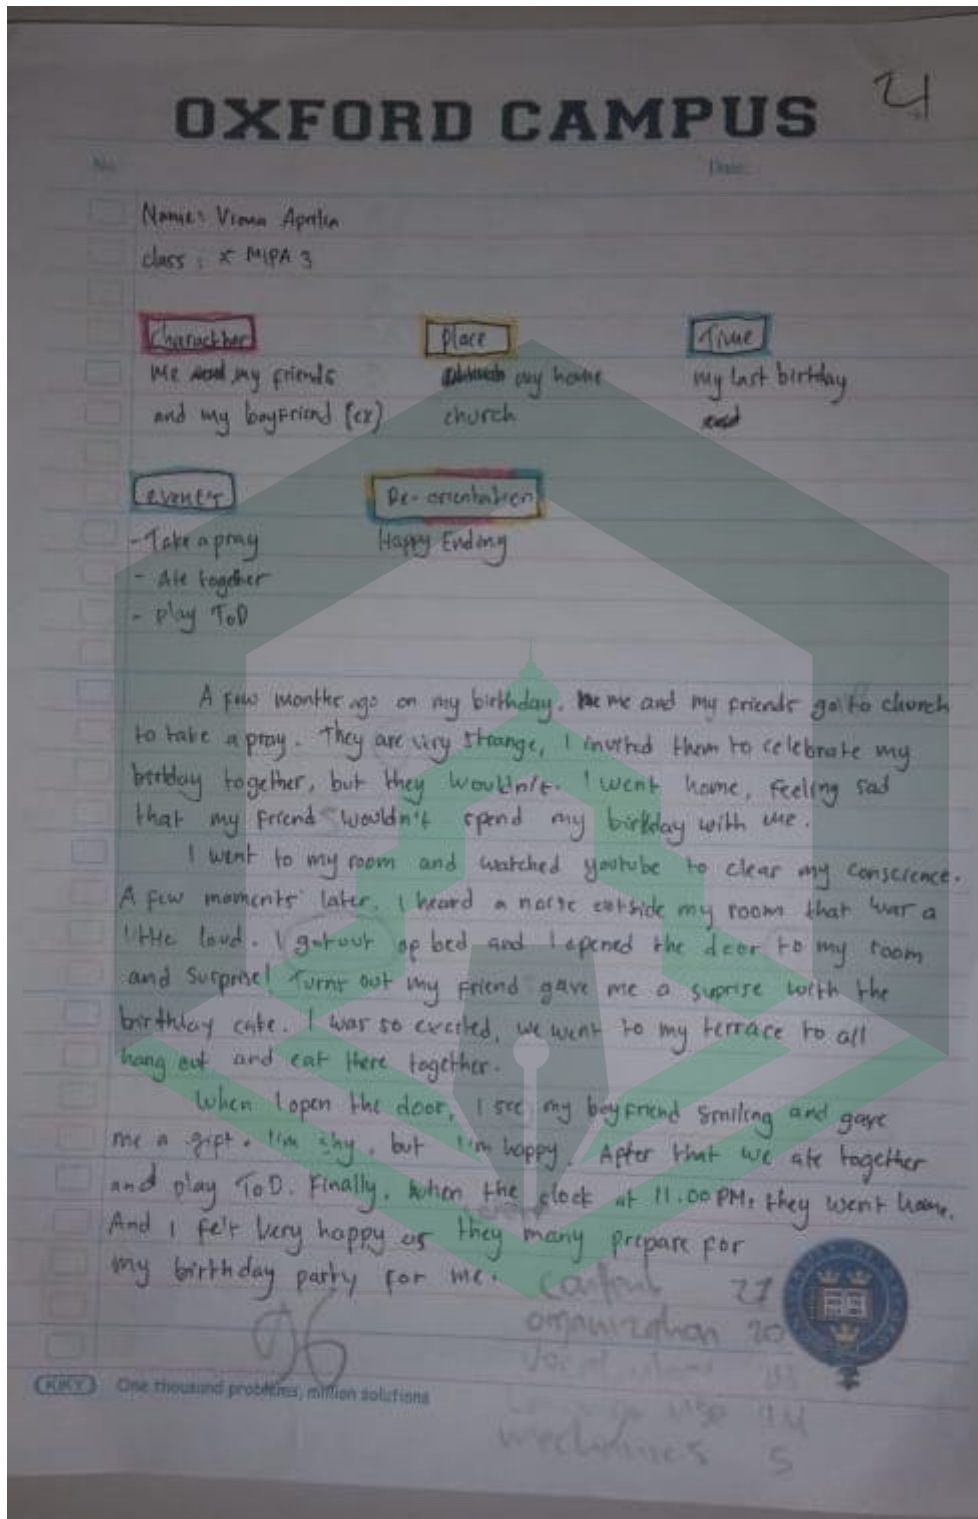 21
OXFORD CAMPUS
No. Date:
Name: Viona Aprilia
class : X MIPA 3
Charackher Place Time
me my friends my home my last birtday
and my boyfriend (ex) church
event's Re-orientation
- Take a pray Happy Ending
- Ate together
- play ToD
A few months ago on my birthday. me and my friends go to church
to take a pray. They are very strange, I invited them to celebrate my
birtday together, but they wouldn't. I went home, feeling sad
that my friend wouldn't spend my birtday with me.
I went to my room and watched youtube to clear my conscience.
A few moments later, I heard a noise outside my room that was a
little loud. I got out of bed and I opened the door to my room
and Surprise! Turns out my friend gave me a suprise with the
birthday cake. I was so excited, we went to my terrace to all
hang out and eat there together.
When I open the door, I see my boyfriend smiling and gave
me a gift. I'm shy, but I'm happy. After that we ate together
and play ToD. Finally, when the clock at 11.00 PM. they went home.
And I felt very happy as they many prepare for
my birthday party for me.
content 27
organization 20
mechanics 5
KKY One thousand problems, million solutions